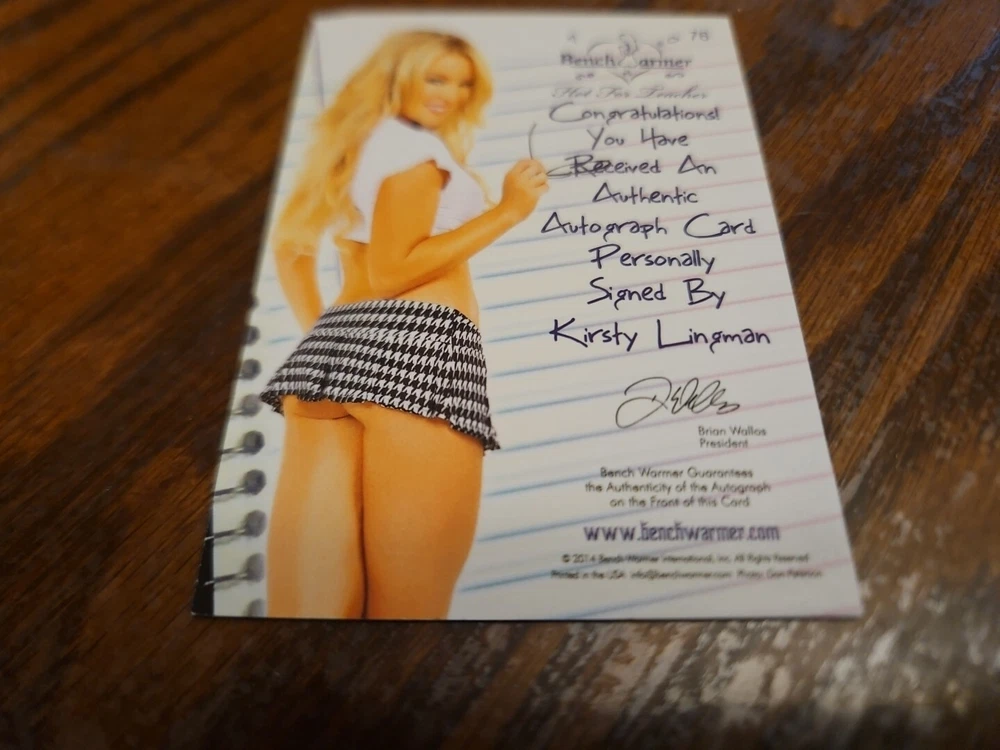 78
BenchWarmer
Hot For Teacher
Congratulations!
You Have
Received An
Authentic
Autograph Card
Personally
Signed By
Kirsty Lingman
Brian Wallos
President
Bench Warmer Guarantees
the Authenticity of the Autograph
on the Front of this Card
www.benchwarmer.com
© 2014 Bench Warmer International, Inc. All Rights Reserved
Printed in the USA info@benchwarmer.com Photo: